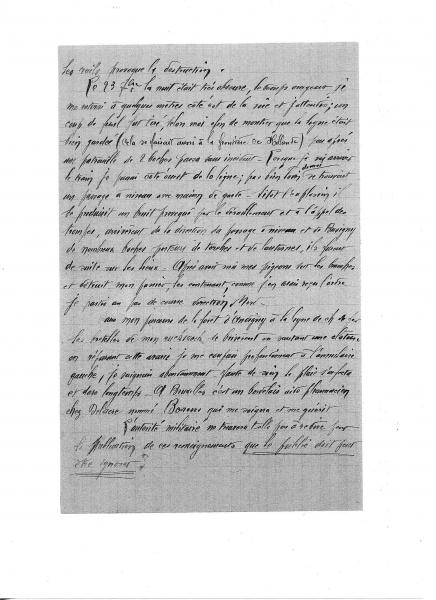 les rails provoque la destruction.
Le 23 7bre la nuit était très obscure, le temps orageux je
me retirai à quelques mètres côté est de la voie et j'attendis; un
coup de fusil fut tiré, selon moi afin de montrer que la ligne était
bien gardée (cela se faisait aussi à la frontière de Hollande) peu après
une patrouille de 2 boches passa sans incident. Lorsque je vis arriver
le train je passai côté ouest de la ligne; pas bien loin devant se trouvait
un passage à niveau avec maison de garde. Sitôt l'explosion il
se produisit un bruit provoqué par le déraillement et à l'appel des
trompes, arrivèrent de la direction du passage à niveau et de
de nombreux boches porteurs de torches et de lanternes, ils furent
de suite sur les lieux. Après avoir mis mes pigeons sur les
et détruit mon panier les contenant, comme j'en avais reçu l'ordre
je partis au pas de course direction
les verres de mon se brisèrent en sautant une clôture
en réparant cette avarie je me coupai profondément à l'annulaire
gauche, je saignais abondamment faute de soins la plaie s'infecta
et dura longtemps. A Bruxelles c'est un aide pharmacien
chez Delacre nommé qui me soigna et me guérit
L'autorité militaire ne trouvera t'elle pas à redire sur
la publication de ces renseignements que le public doit peut
être ignorer ?